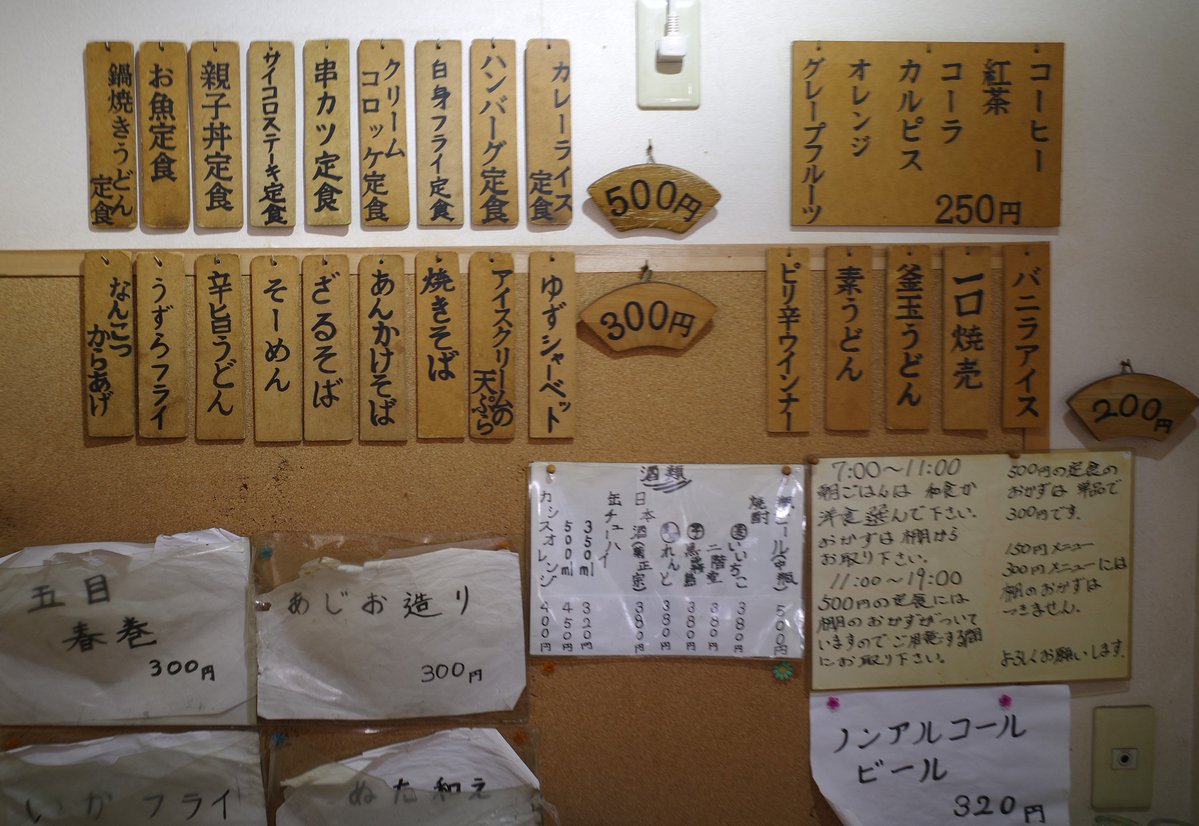 カレーライス定食
ハンバーグ定食
白身フライ定食
クリームコロッケ定食
串カツ定食
サイコロステーキ定食
親子丼定食
お魚定食
鍋焼きうどん定食
500円
コーヒー
紅茶
コーラ
カルピス
オレンジ
グレープフルーツ
250円
ゆずシャーベット
アイスクリームの天ぷら
焼きそば
あんかけそば
ざるそば
そーめん
辛旨うどん
うずらフライ
なんこつからあげ
300円
バニラアイス
一口焼売
釜玉うどん
素うどん
ピリ辛ウインナー
200円
酒類
瓶ビール(中瓶) 500円
焼酎
いいちこ 380円
二階堂 380円
黒霧島 380円
れんと 380円
日本酒(菊正宗) 380円
缶チューハイ
350ml 320円
500ml 450円
カシスオレンジ 400円
7:00〜11:00
朝ごはんは 和食か
洋食 選んで下さい。
おかずは棚から
お取り下さい。
11:00〜19:00
500円の定食には
棚のおかずがついて
いますのでご用意する間
にお取り下さい。
500円の定食の
おかずは 単品で
300円です。
150円メニュー
300円メニューには
棚のおかずは
つきません。
よろしくお願いします。
五目
春巻
300円
あじお造り
300円
いかフライ
ぬた和え
ノンアルコール
ビール
320円